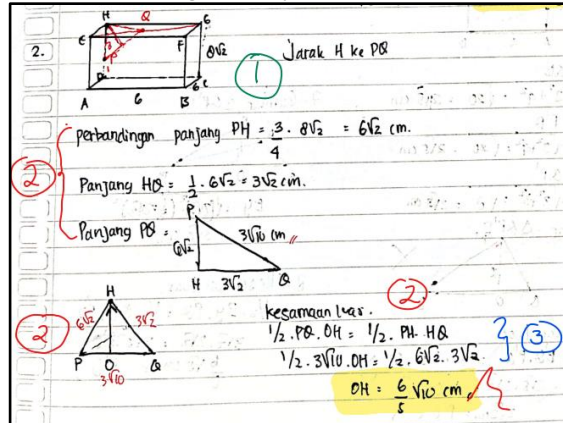 2.
H Q G
E F
P
3
1
D C
A 6 B 6
8√2
Jarak H ke PQ
1
perbandingan panjang PH = 3/4 . 8√2 = 6√2 cm.
2
Panjang HQ = 1/2 . 6√2 = 3√2 cm.
Panjang PQ =
P
6√2
3√10 cm
H 3√2 Q
2
H
6√2 3√2
P O Q
3√10
2
kesamaan luas.
1/2 . PQ . OH = 1/2 . PH . HQ
1/2 . 3√10 . OH = 1/2 . 6√2 . 3√2
3
OH = 6/5 √10 cm